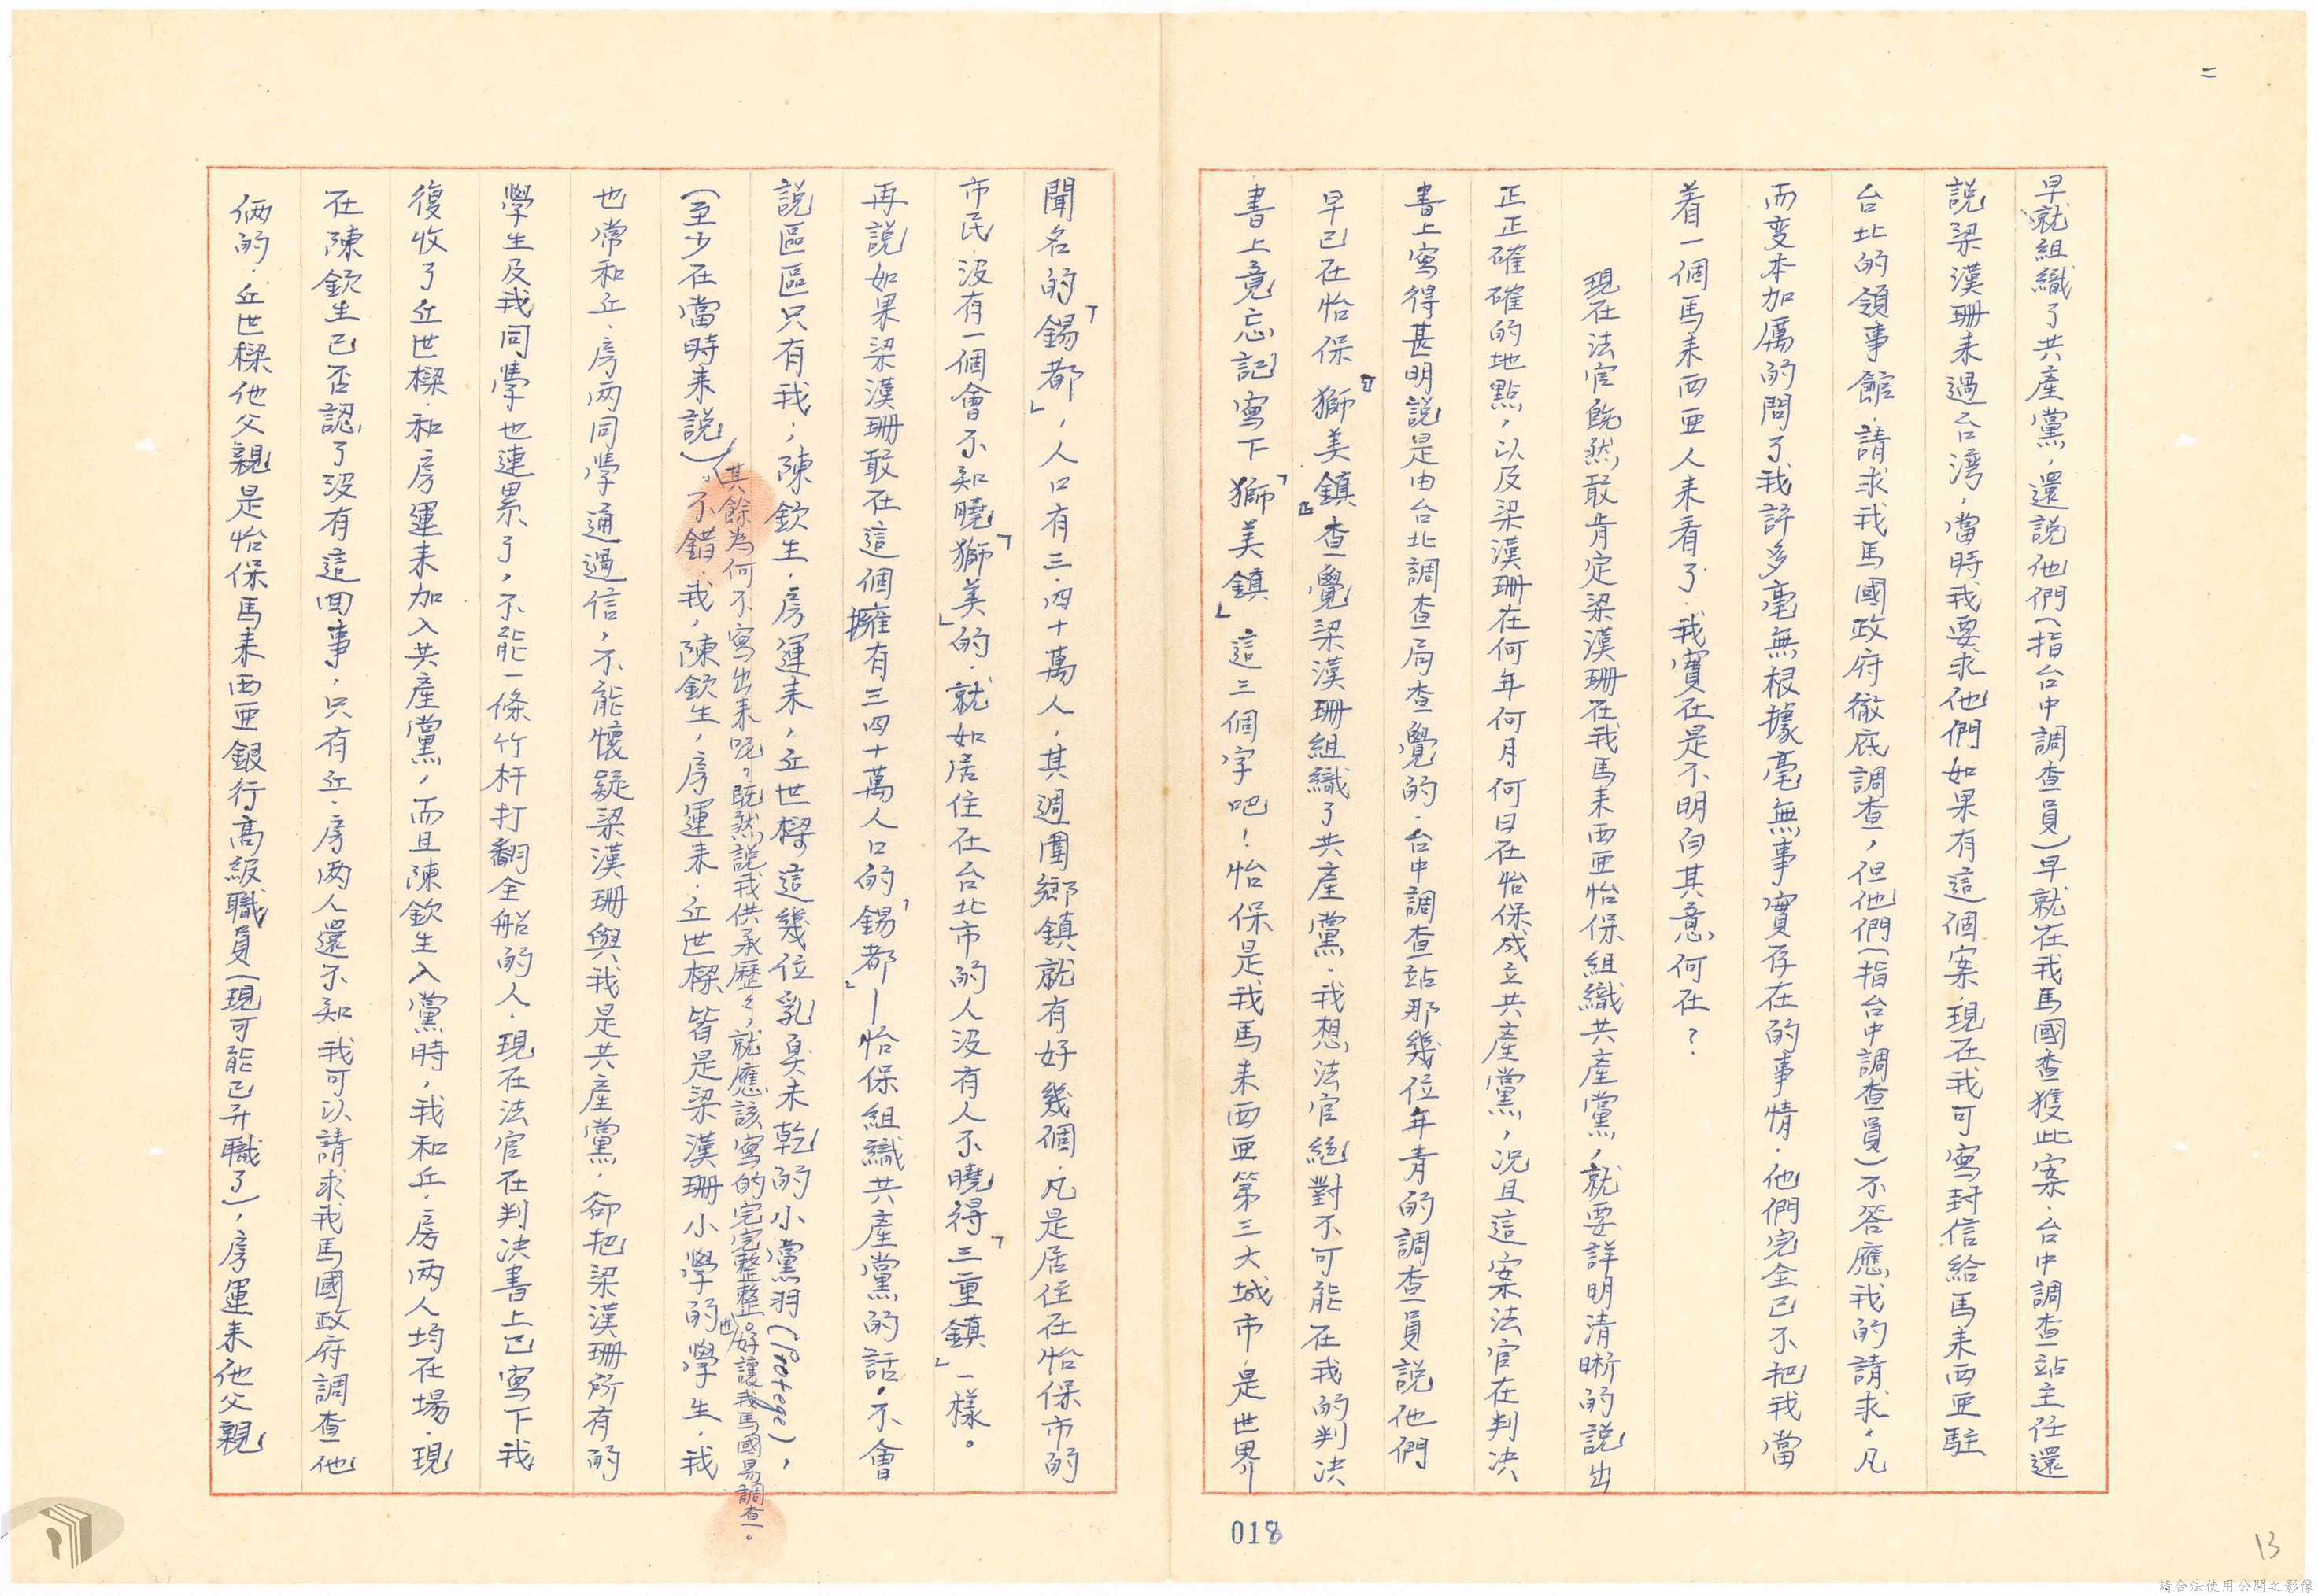 二
早就組織了共產黨，還說他們(指台中調查員)早就在我馬國查獲此案．台中調查站主任還
說梁漢珊来過台湾，當時我要求他們如果有這個案．現在我可寫封信給馬来西亜駐
台北的領事館．請求我馬國政府徹底調查，但他們(指台中調查員)不答應我的請求．凡
而变本加厲的問了我許多毫無根據毫無事實存在的事情．他們完全已不把我當
着一個馬来西亜人来看了．我實在是不明白其意何在？
現在法官既然敢肯定梁漢珊在我馬来西亜怡保組織共產黨，就要詳明清晰的說出
正正確確的地點，以及梁漢珊在何年何月何日在怡保成立共產黨，况且這案法官在判决
書上寫得甚明說是由台北調查局查覺的．台中調查站那幾位年青的調查員說他們
早已在怡保『獅美鎮』查覺梁漢珊組織了共產黨．我想法官絕對不可能在我的判决
書上竟忘記寫下「獅美鎮」這三個字吧！怡保是我馬来西亜第三大城市．是世界
聞名的「錫都」，人口有三．四十萬人，其週圍鄉鎮就有好幾個．凡是居住在怡保市的
市民．沒有一個會不知曉「獅美」的．就如居住在台北市的人沒有人不曉得「三重鎮」一樣。
再說如果梁漢珊敢在這個擁有三四十萬人口的「錫都」—怡保組織共產黨的話，不會
說區區只有我，陳欽生．房運来，丘世樑這幾位乳臭未乾的小黨羽(Protege)，
其餘為何不寫出来呢，既然說我供承歷々，就應該寫的完完整整。好讓我馬國易調查。
(至少在當時来說)。不錯．我，陳欽生，房運来．丘世樑皆是梁漢珊小學的學生．我
也
也常和丘．房两同學通過信，不能懷疑梁漢珊與我是共產黨．卻把梁漢珊所有的
學生及我同學也連累了，不能一條竹杆打翻全船的人．現在法官在判决書上已寫下我
復收了丘世樑．和房運来加入共產黨，而且陳欽生入黨時，我和丘．房两人均在場．現
在陳欽生已否認了沒有這回事，只有丘．房两人還不知．我可以請求我馬國政府調查他
倆的．丘世樑他父親是怡保馬来西亜銀行高級職員(現可能已升職了)，房運来他父親
018
13
請合法使用公開之影像